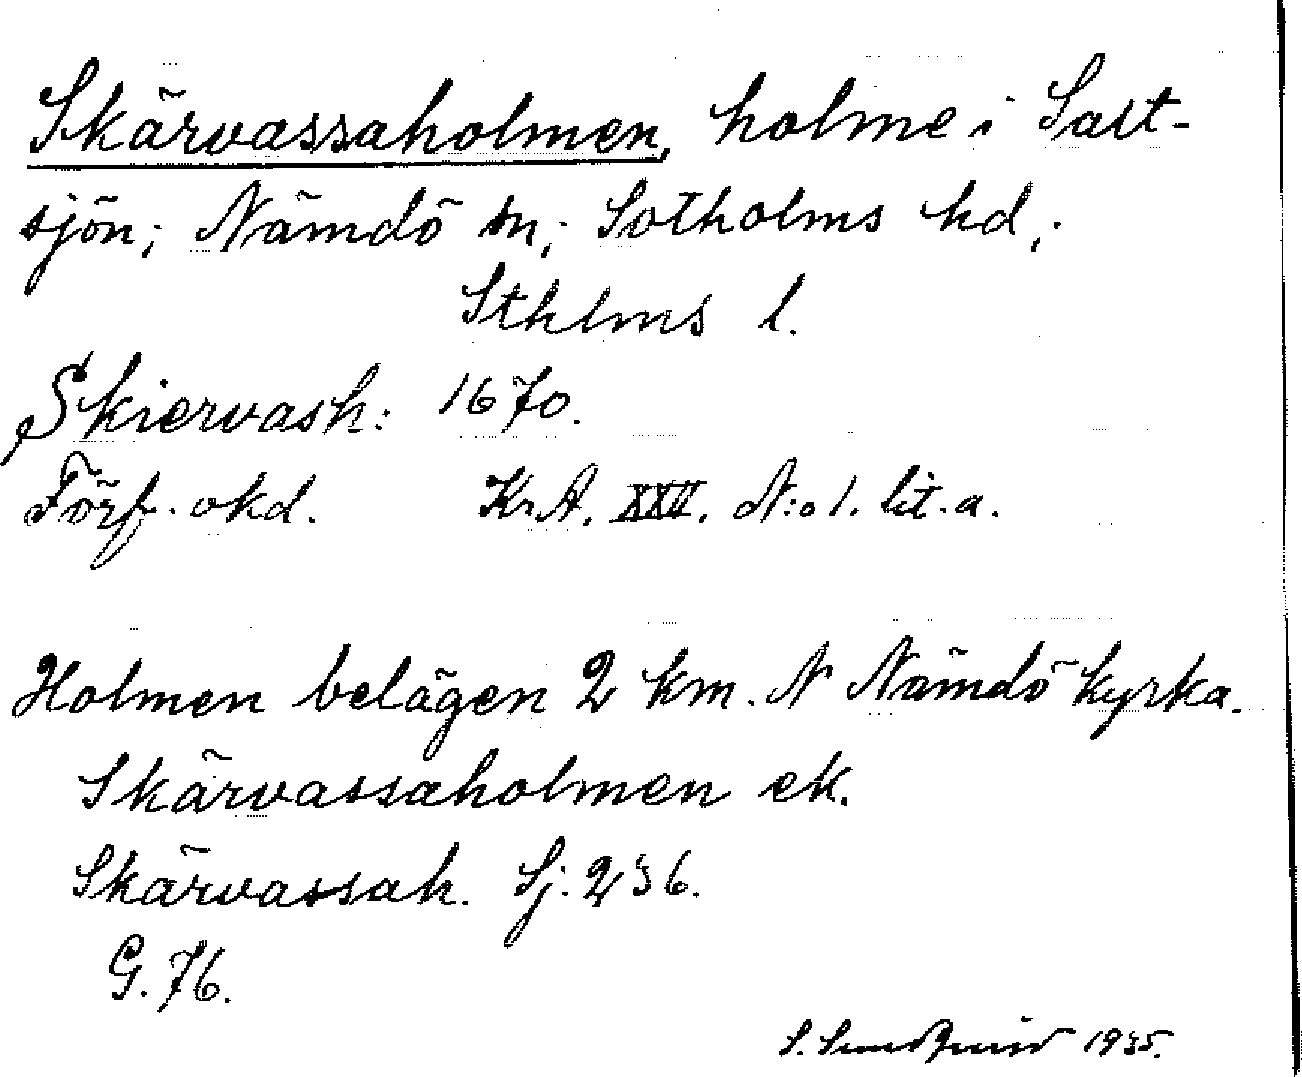 Skärvassaholmen, holme i Salt-
sjön; Nämdö sn; Sotholms hd;
Sthlms l.
Skiervash: 1670.
Förf. okd. Kr.A. XXV. N:o 1. lit. a.
Holmen belägen 2 km. N Nämdö kyrka.
Skärvassaholmen ek.
Skärvassah. Sj. 236.
G. 76.
S. Sundquist 1935.